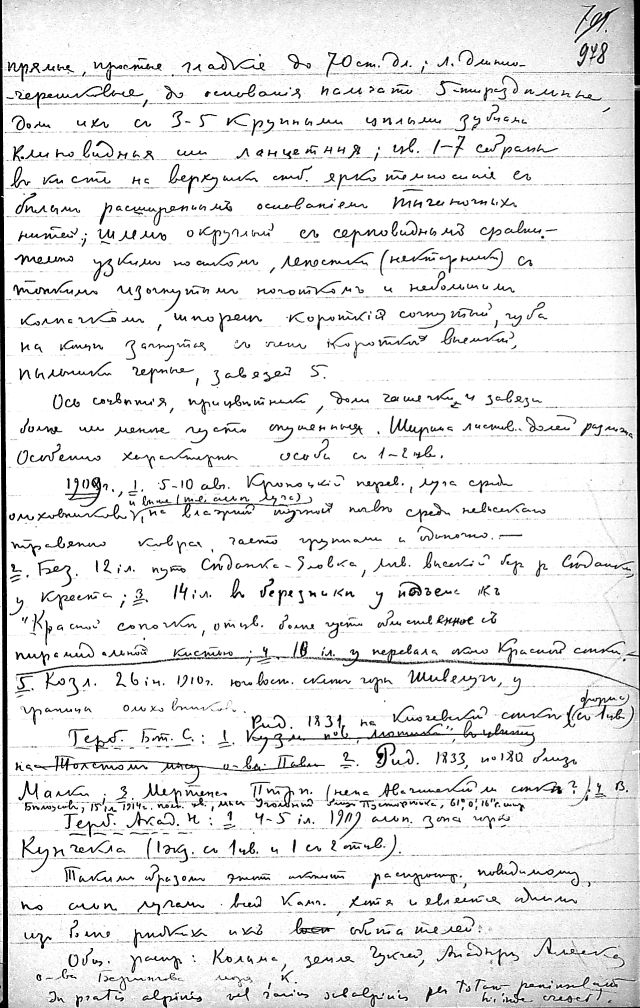 978
прямые, простые гладкіе до 70 ст. дл.; л. длинно-
-черешковые, до основанія пальчато 5-тираздѣльные,
доли ихъ съ 3-5 крупными цѣлыми зубцами
клиновидныя или ланцетныя; цв. 1-7 собраны
въ кисть на верхушкѣ стб. яркотемносиніе съ
бѣлымъ расширеннымъ основаніемъ тычиночныхъ
нитей; шлемъ округлый съ серповиднымъ сравни-
тельно узкимъ носикомъ, лепестки (нектарники) съ
тонкимъ изогнутымъ ноготкомъ и небольшимъ
колпачкомъ, шпорецъ короткій согнутый, губа
на концѣ загнутая съ очень короткой выемкой,
пыльники черные, завязей 5.
Ось соцвѣтія, прицвѣтники, доли чашечки и завязи
болѣе или менѣе густо опушенныя. Ширина листов. долей различна
Особенно характерны особи съ 1-2 цв.
1909 г., 1. 5-10 авг. Кроноцкій перев., луга среди
и выше (тв. альп. луга)
ольховниковъ, на влажной тучной почвѣ среди невысокаго
травяного ковра, часто группами и одиночно. —
2. Без. 12 іл. путь Сѣданка-Еловка, лѣв. высокій бер. р. Сѣданки,
у креста; 3. 14 іл. въ березнякѣ у подъема къ
"Красной сопочкѣ, отцв. болѣе густо облиственное съ
пирамидальной кистью; 4. 18 іл. у перевала около Красной сопки. —
5. Козл. 26 іл. 1910 г. юговост. склонъ горы Шивелучъ, у
границы ольховниковъ. (форма)
Рид. 1831, на Ключевской сопкѣ (съ 1 цв.)
Герб. Бот. С.: 1.
на о-ва Павла 2. Рид. 1833, по 180 близъ
Малки; 3 Мертенсъ Птрп. (нена Авачинской ли сопкѣ?); 4 В.
15 іл. 1914 г.
Герб. Акад. Н: 1 4-5 іл. 1909 альп. зона горы
Кунчекла (1 экз. съ 1 цв. и 1 съ 2 отцв.).
Такимъ образомъ этотъ аконитъ распростр., повидимому,
по альп. лугамъ всей Камч., хотя и является однимъ
изъ болѣе рѣдкихъ ихъ обитателей.
Общ. распр: Колыма, земля Чукчей, Анадырь, Аляска,
о-ва Берингова моря, К.
In pratis alpinis vel rarius subalpinis per totam peninsulam